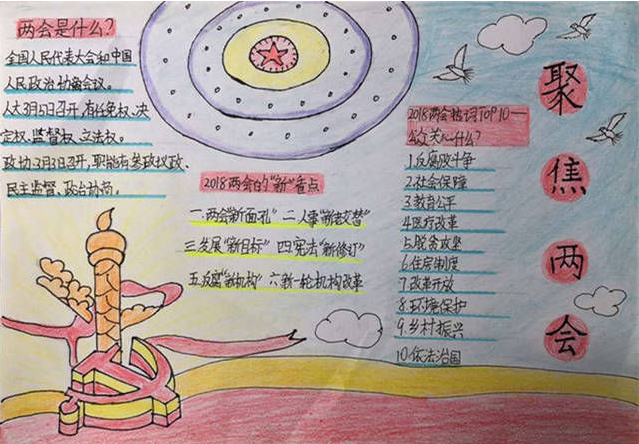 两会是什么?
全国人民代表大会和中国
人民政治协商会议。
人大3月5日召开,有任免权、决
定权、监督权、立法权。
政协3月3日召开,职能有参政议政、
民主监督、政治协商。
2018两会的"新"看点
一.两会"新面孔" 二.人事"新老交替"
三.发展"新目标" 四.宪法"新修订"
五.反腐"新机构" 六.新一轮机构改革
2018两会热词TOP10—
公众关心什么?
1.反腐败斗争
2.社会保障
3.教育公平
4.医疗改革
5.脱贫攻坚
6.住房制度
7.改革开放
8.环境保护
9.乡村振兴
10.依法治国
聚
焦
两
会